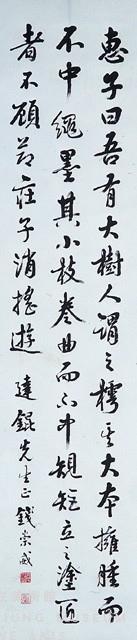 惠子曰吾有大樹人謂之樗其大本擁腫而
不中繩墨其小枝卷曲而不中規矩立之塗匠
者不顧節莊子消搖遊 達錕先生正 錢崇威